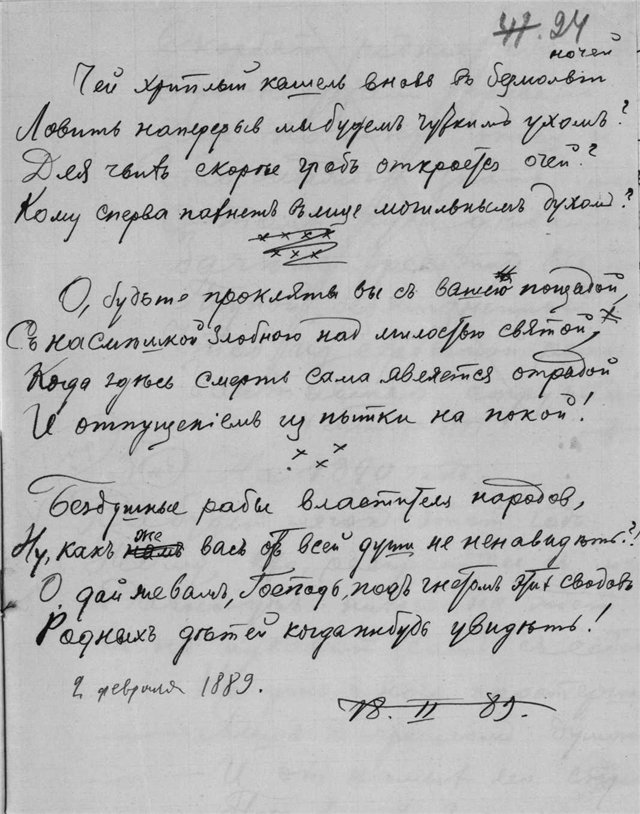 24
ночей
Чей хриплый кашель вновь въ безмолвіи
Ловить наперерыв мы будемъ чуткимъ ухомъ?
Для чьихъ скорѣе гробъ откроется очей?
Кому сперва пахнетъ въ лице могильнымъ духомъ?
О, будьте прокляты вы съ вашею пощадой,
Съ насмѣшкой злобною над милостью святой,
Когда здѣсь смерть сама является отрадой
И отпущеніемъ из пытки на покой!
Бездушные рабы властителя народов,
же
Ну, какъ васъ отъ всей души не ненавидѣть?!
О, дай же вамъ, Господь, подъ гнетомъ этих сводовъ
Родныхъ дѣтей когда нибудь увидѣть!
2 февраля 1889.
18. II 89.